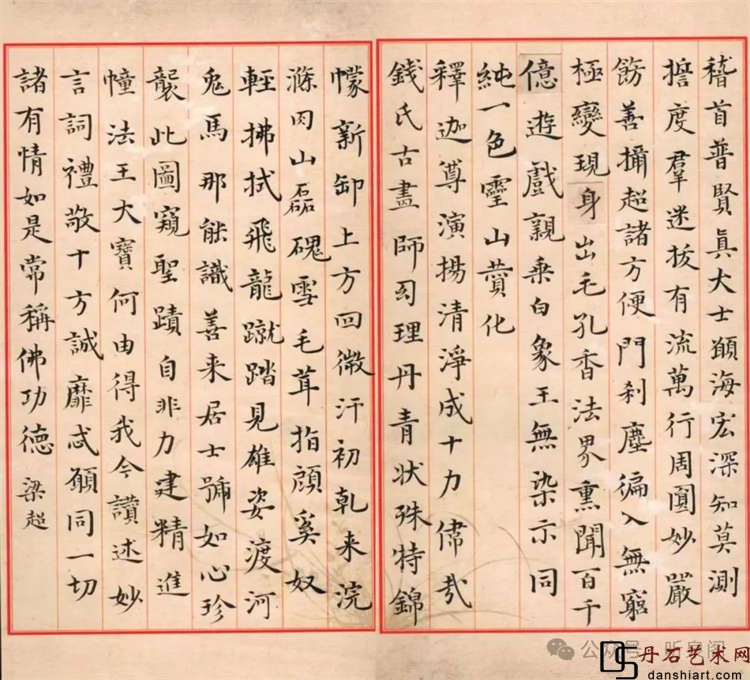 稽首普賢真大士願海宏深知莫測
誓度羣迷拔有流萬行周圓妙嚴
飭善攝超諸方便門剎塵徧入無窮
極變現身出毛孔香法界熏聞百千
億遊戲親乘白象王無染示同
純一色靈山贊化
釋迦尊演揚清淨成十力偉哉
錢氏古畫師匀理丹青状殊特錦
幪新卸上方回微汗初乾来浣
滌肉山磊磈雪毛茸指顧奚奴
輕拂拭飛龍蹴踏見雄姿渡河
兔馬那能識善来居士號如心珍
襲此圖窺聖蹟自非力建精進
幢法王大寶何由得我今讚述妙
言詞禮敬十方誠靡忒願同一切
諸有情如是常稱佛功德 梁超
公众号·听泉阁
DS 丹石艺术网
danshiart.com